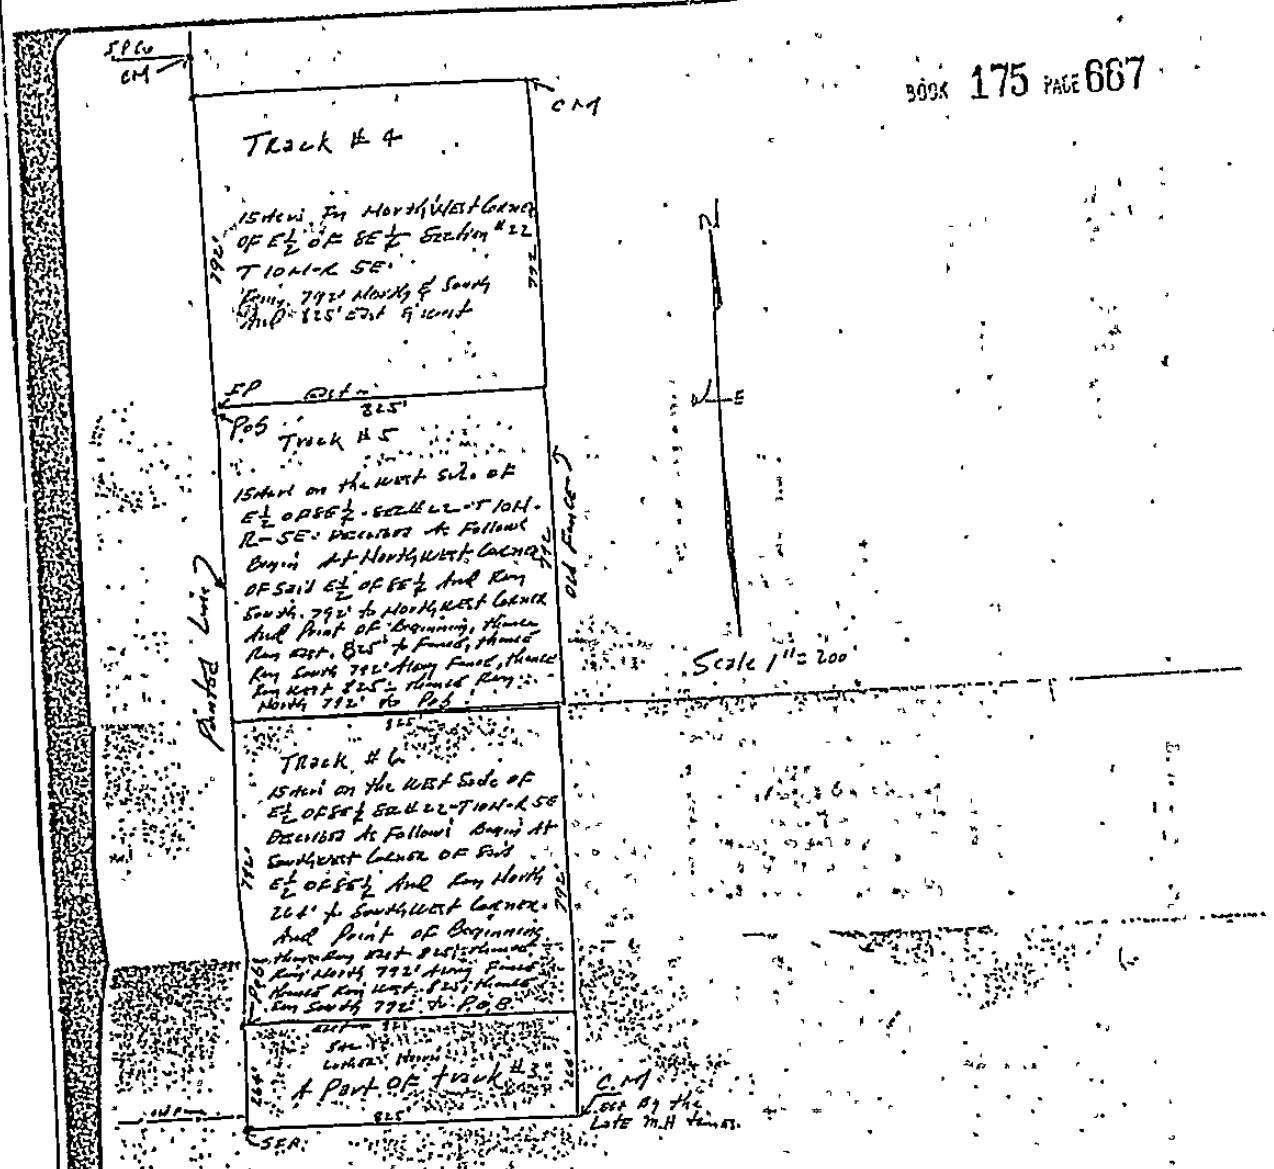 CM
BOOK 175 PAGE 667
CM
Track # 4
15 Acres In North West Corner
OF E½ OF SE½ Section # 22
T10N-R 5E.
Being 792' North & South
And 825' East & West
792'
792
IP
East
825'
POB
Track # 5
15 Acres on the West Side OF
E½ OF SE½ - Sec # 22-T10N-
R-5E. Described As Follows
Begin At North West Corner
OF Said E½ OF SE½ And Run
South 792' to North West Corner
And Point OF Beginning, thence
Run East, 825' to Fence, thence
Run South 792' Along Fence, thence
Run West 825', thence Run
North 792' to POB.
792
Old Fence
Painted Line
N
W E
Scale 1"=200'
825'
Track # 6
15 Acres on the West Side OF
E½ OF SE½ Sec # 22-T10N-R 5E
Described As Follows Begin At
South West Corner OF Said
E½ OF SE½ And Run North
264' to South West Corner
And Point OF Beginning
thence Run East 825', thence
Run North 792' Along Fence
thence Run West 825', thence
Run South 792' to P.O.B.
792'
792'
POB
East
A Part OF Track # 3
264'
264'
825'
C.M.
Set By the
Late M.H